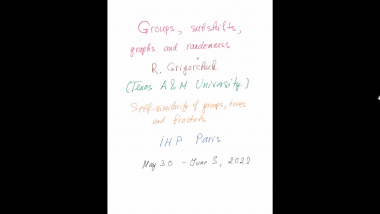 Groups, subshifts,
graphs and randomness
R. Grigorchuk
(Texas A & M University.)
Self-similarity of groups, trees
and fractals
IHP Paris
May 30 - June 3, 2022